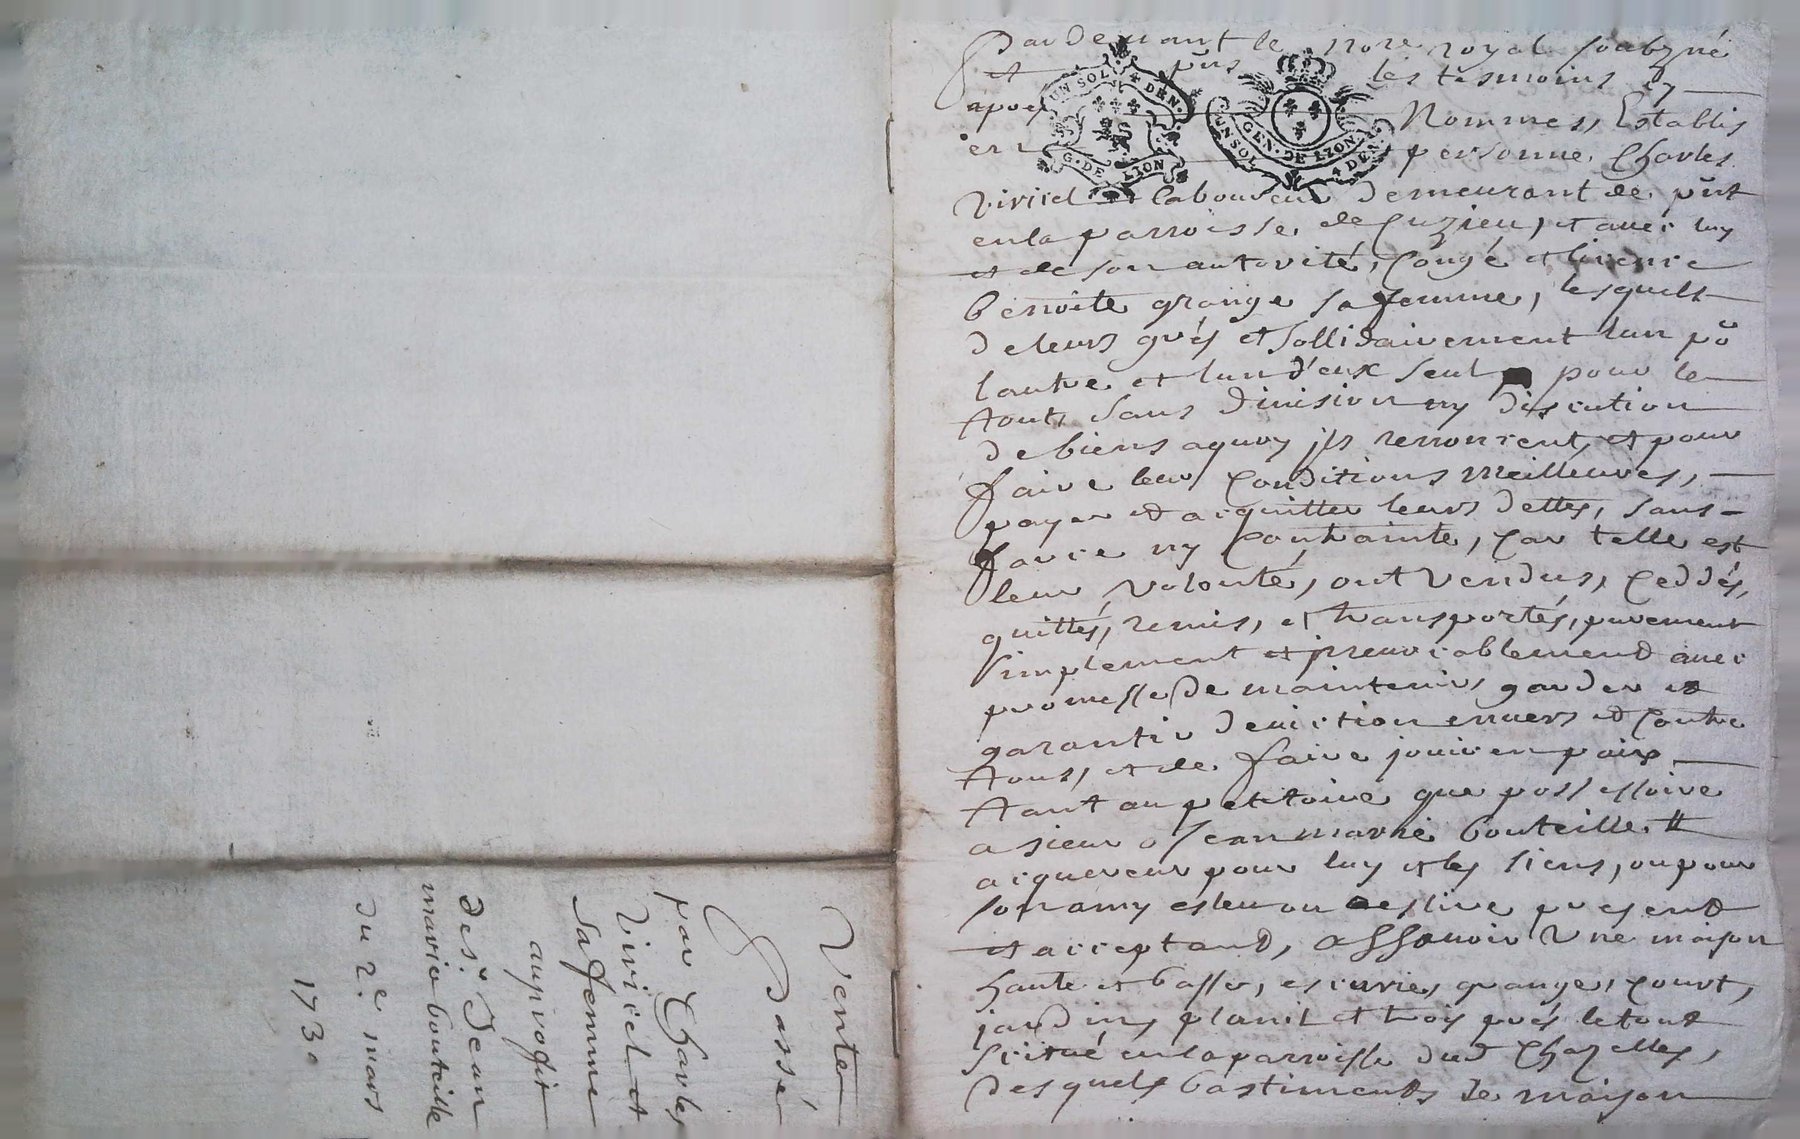 Vente
Passé
par Charles
Viricel et
sa femme
au profit
de sr. Jean
marie bouteille
du 2e mars
1730
Pardevant le nore royal soubzné
et pnts les tesmoins cy
apres Nommes, Establis
en personne, Charles
Viricel laboureur demeurant de pnt
en la parroisse, de Cuzieu, et avec luy
et de son autorité, Congé et licence
benoite grange sa femme, lesquels
de leurs grés et sollidairement lun po
lautre et lun d'eux seul pour le
tout, sans division ny discution
de biens a quoy jls renoncent, et pour
faire leur Conditions meilleures,
payer et acquitter leurs dettes, sans
force ny Contrainte, Car telle est
leur volonté, ont vendus, Ceddés,
quittés, remis, et transportés, purement
simplement et jrrevocablement avec
promesse de maintenir garder et
garantir deviction envers et Contre
tous, et de faire jouir en paix
tant au petitoire que possessoire
a sieur Jean marie bouteille
acquereur pour luy et les siens, ou pour
son amy esleu ou a eslire present
et acceptant, assavoir Une maison
haute et basse, escuries, grange, Court,
jardins, et trois prés le tout
scitué en la parroisse dud Chazelles,
Desquels bastiments de maison
UN SOL 4 DEN.
G. DE LION
GEN. DE LION
UN SOL 4 DEN.